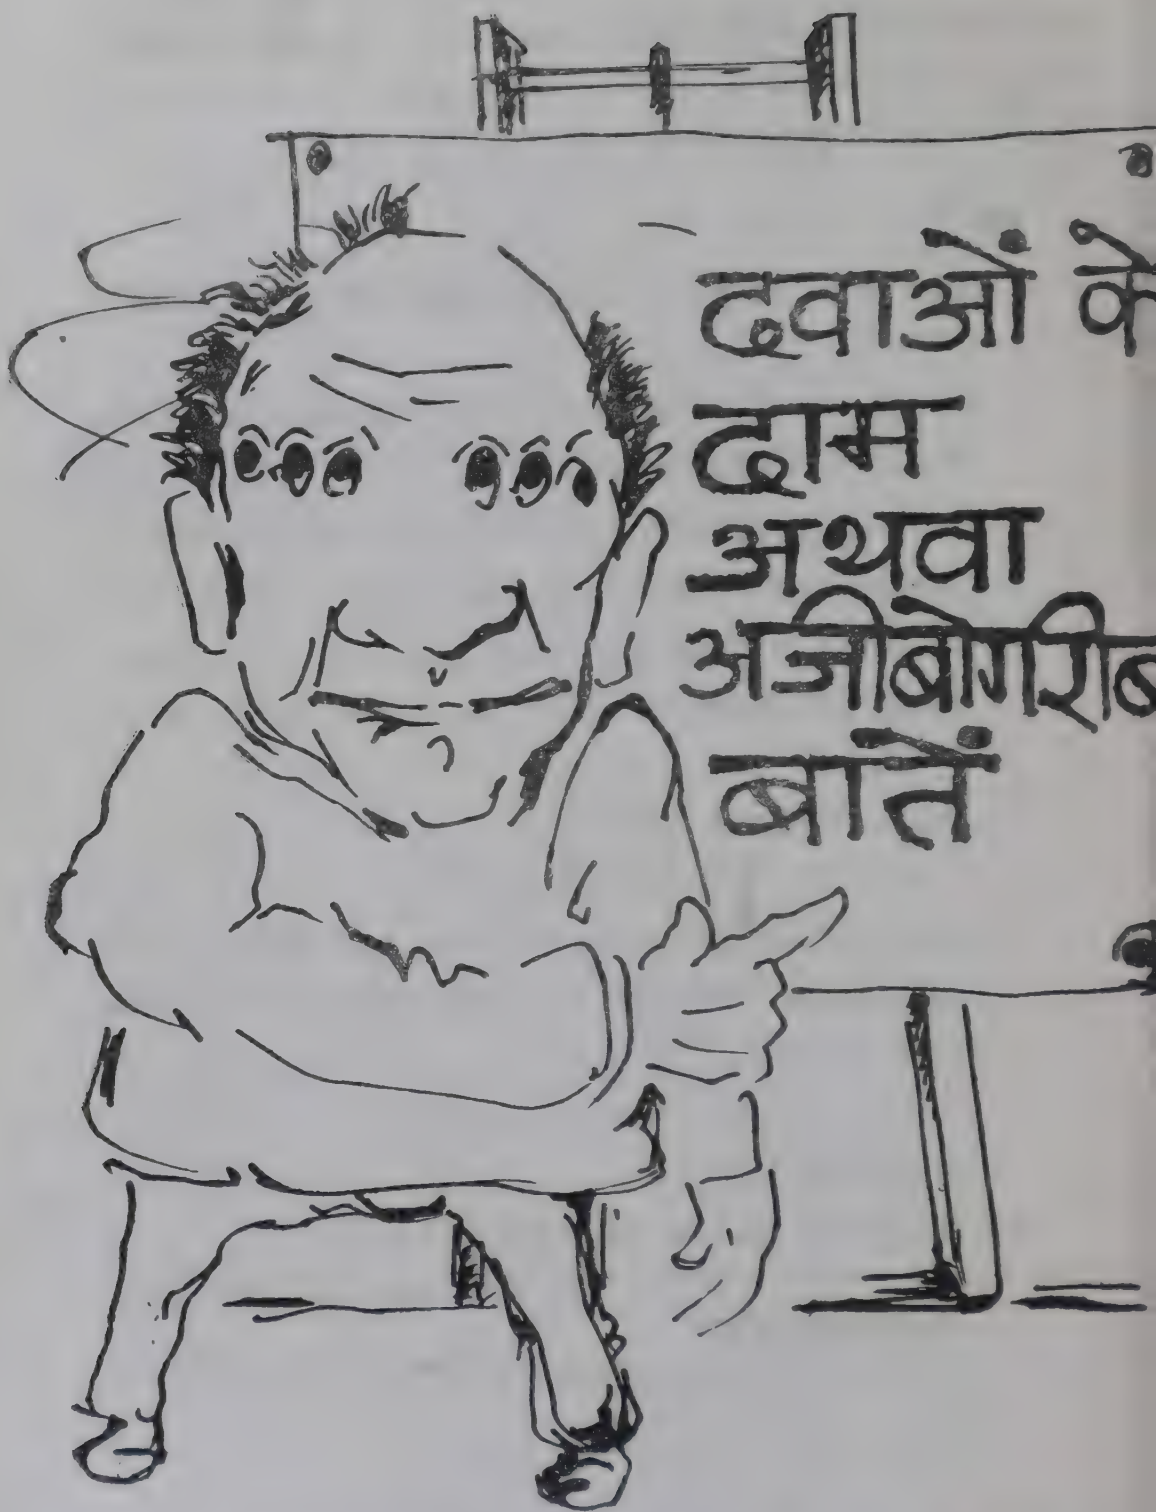 दवाओं के
दाम
अथवा
अजीबोगरीब
बातें